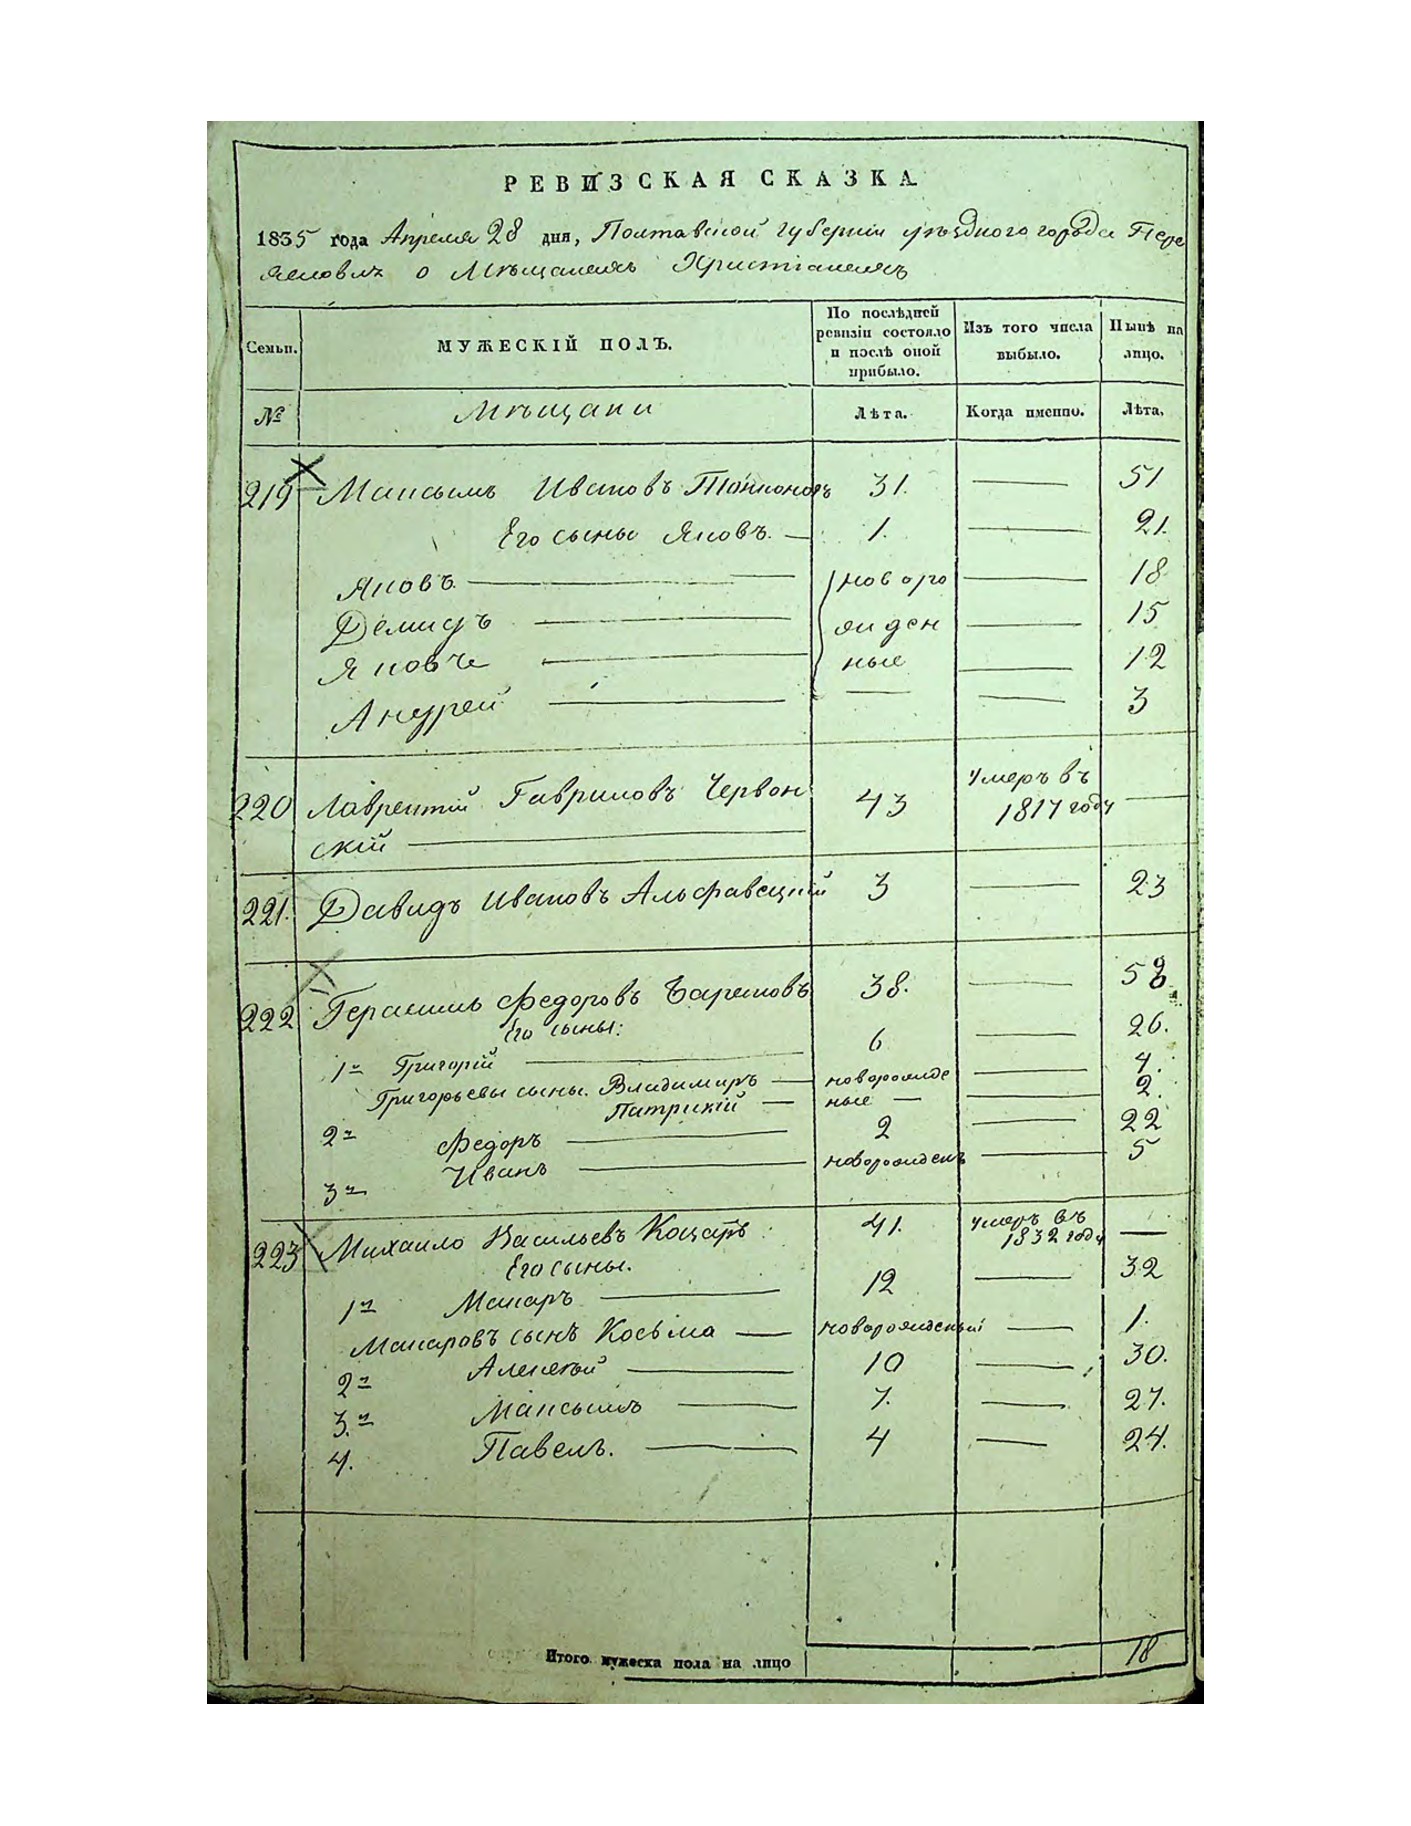 РЕВИЗСКАЯ СКАЗКА
1835 года Апреля 28 дня, Полтавской губернии уѣзднаго города Пере
яславля о Мѣщанахъ Христіанахъ
Семьи.
МУЖЕСКІЙ ПОЛЪ.
По послѣдней ревизіи состояло и послѣ оной прибыло.
Изъ того числа выбыло.
Нынѣ на лицо.
№
Мѣщани
Лѣта.
Когда именно.
Лѣта.
219 Максымъ Ивановъ 31. — 51
Его сыны Яковъ. — 1. — 21.
Яковъ — новоро — 18
Демидъ — жден — 15
Яковъ — ные — 12
Андрей — — — 3
220 Лаврентій Гавриловъ Червон 43 умеръ въ 1817 году —
скій —
221. Давидъ Ивановъ 3 — 23
222 Герасимъ Федоровъ 38. — 58
Его сыны:
1й Григорій — 6 — 26.
Григорьевы сыны. Владимиръ — новорожде — 4.
Патрикій — ные — — 2.
2й Федоръ — 2 — 22
3й Иванъ — новорожденъ — 5
223 Михаило Васильевъ Коцарь 41. умеръ въ 1832 году —
Его сыны.
1й Макаръ — 12 — 32
Макаровъ сынъ Косьма — новорожденный — 1.
2й Алексѣй — 10 — 30.
3.й Максымъ — 7. — 27.
4. Павелъ. — 4 — 24.
Итого мужеска пола на лицо 18